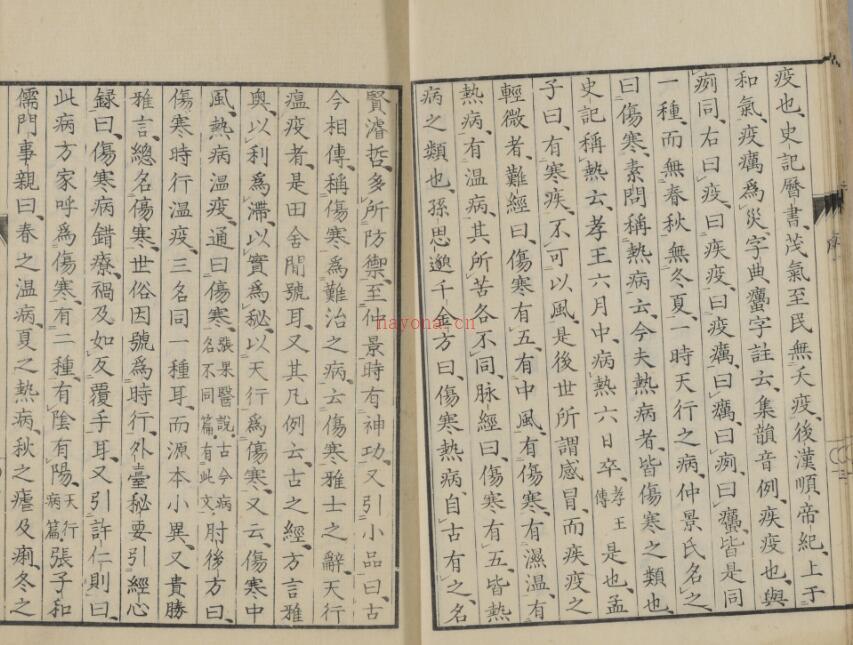 疫也、史記曆書、茂氣至民無夭疫、後漢順帝紀、上干
和氣、疫癘爲災、字典蠱字註云、集韻音例、疾疫也、與
痢同、右曰疫、曰疾疫、曰疫癘、曰癘、曰痢、曰蠱、皆是同
一種、而無春秋無冬夏、一時天行之病、仲景氏名之
曰傷寒、素問稱熱病、云今夫熱病者、皆傷寒之類也、
史記稱熱云、孝王六月中、病熱六日卒、孝王傳是也、孟
子曰、有寒疾、不可以風、是後世所謂感冒、而疾疫之
輕微者、難經曰、傷寒有五、有中風、有傷寒、有濕温、有
熱病、有温病、其所苦各不同、脉經曰、傷寒有五、皆熱
病之類也、孫思邈千金方曰、傷寒熱病、自古有之、名
賢濬哲、多所防禦、至仲景時有神功、又引小品曰、古
今相傳、稱傷寒爲難治之病、云傷寒雅士之辭、天行
瘟疫者、是田舍閒號耳、又其凡例云、古之經方言雅
奧、以利爲滯、以實爲秘、以天行爲傷寒、又云、傷寒中
風、熱病温疫、通曰傷寒、張杲醫說、古今病名不同篇、有此文、肘後方曰、
傷寒時行温疫、三名同一種耳、而源本小異、又貴勝
雅言、總名傷寒、世俗因號爲時行、外臺秘要引經心
録曰、傷寒病錯療、禍及如反覆手耳、又引許仁則曰、
此病方家呼爲傷寒、有二種、有陰有陽、天行病篇、張子和
儒門事親曰、春之温病、夏之熱病、秋之瘧及痢、冬之
序
nayona.cn